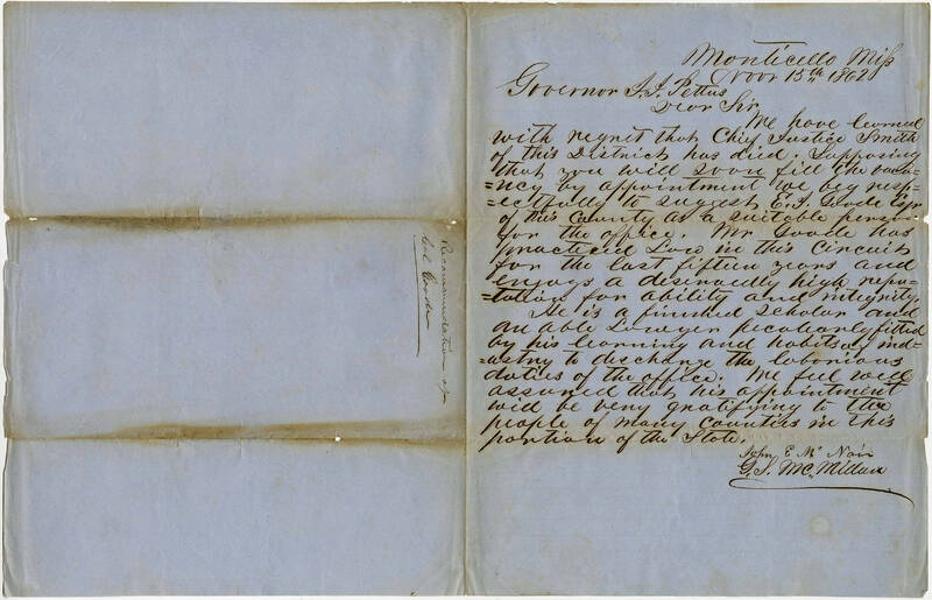 Monticello Miss
Novr 15th 1862
Governor J.J. Pettus
Dear Sir
We have learned
with regret that Chief Justice Smith
of this District has died. Supposing
that you will soon fill the vaca-
=ncy by appointment we beg resp-
=ectfully to suggest E.J. Goode Esqr
of this County as a suitable person
for the office. Mr Goode has
practiced Law in this Circuit
for the last fifteen years and
enjoys a deservedly high repu-
=tation for ability and integrity.
He is a finished scholar and
an able Lawyer peculiarly fitted
by his learning and habits of ind=
=ustry to discharge the laborious
duties of the office. We feel well
assured that his appointment
will be very gratifying to the
people of many counties in this
portion of the State.
John E Mc Nair
Recommendation of
Col Goode